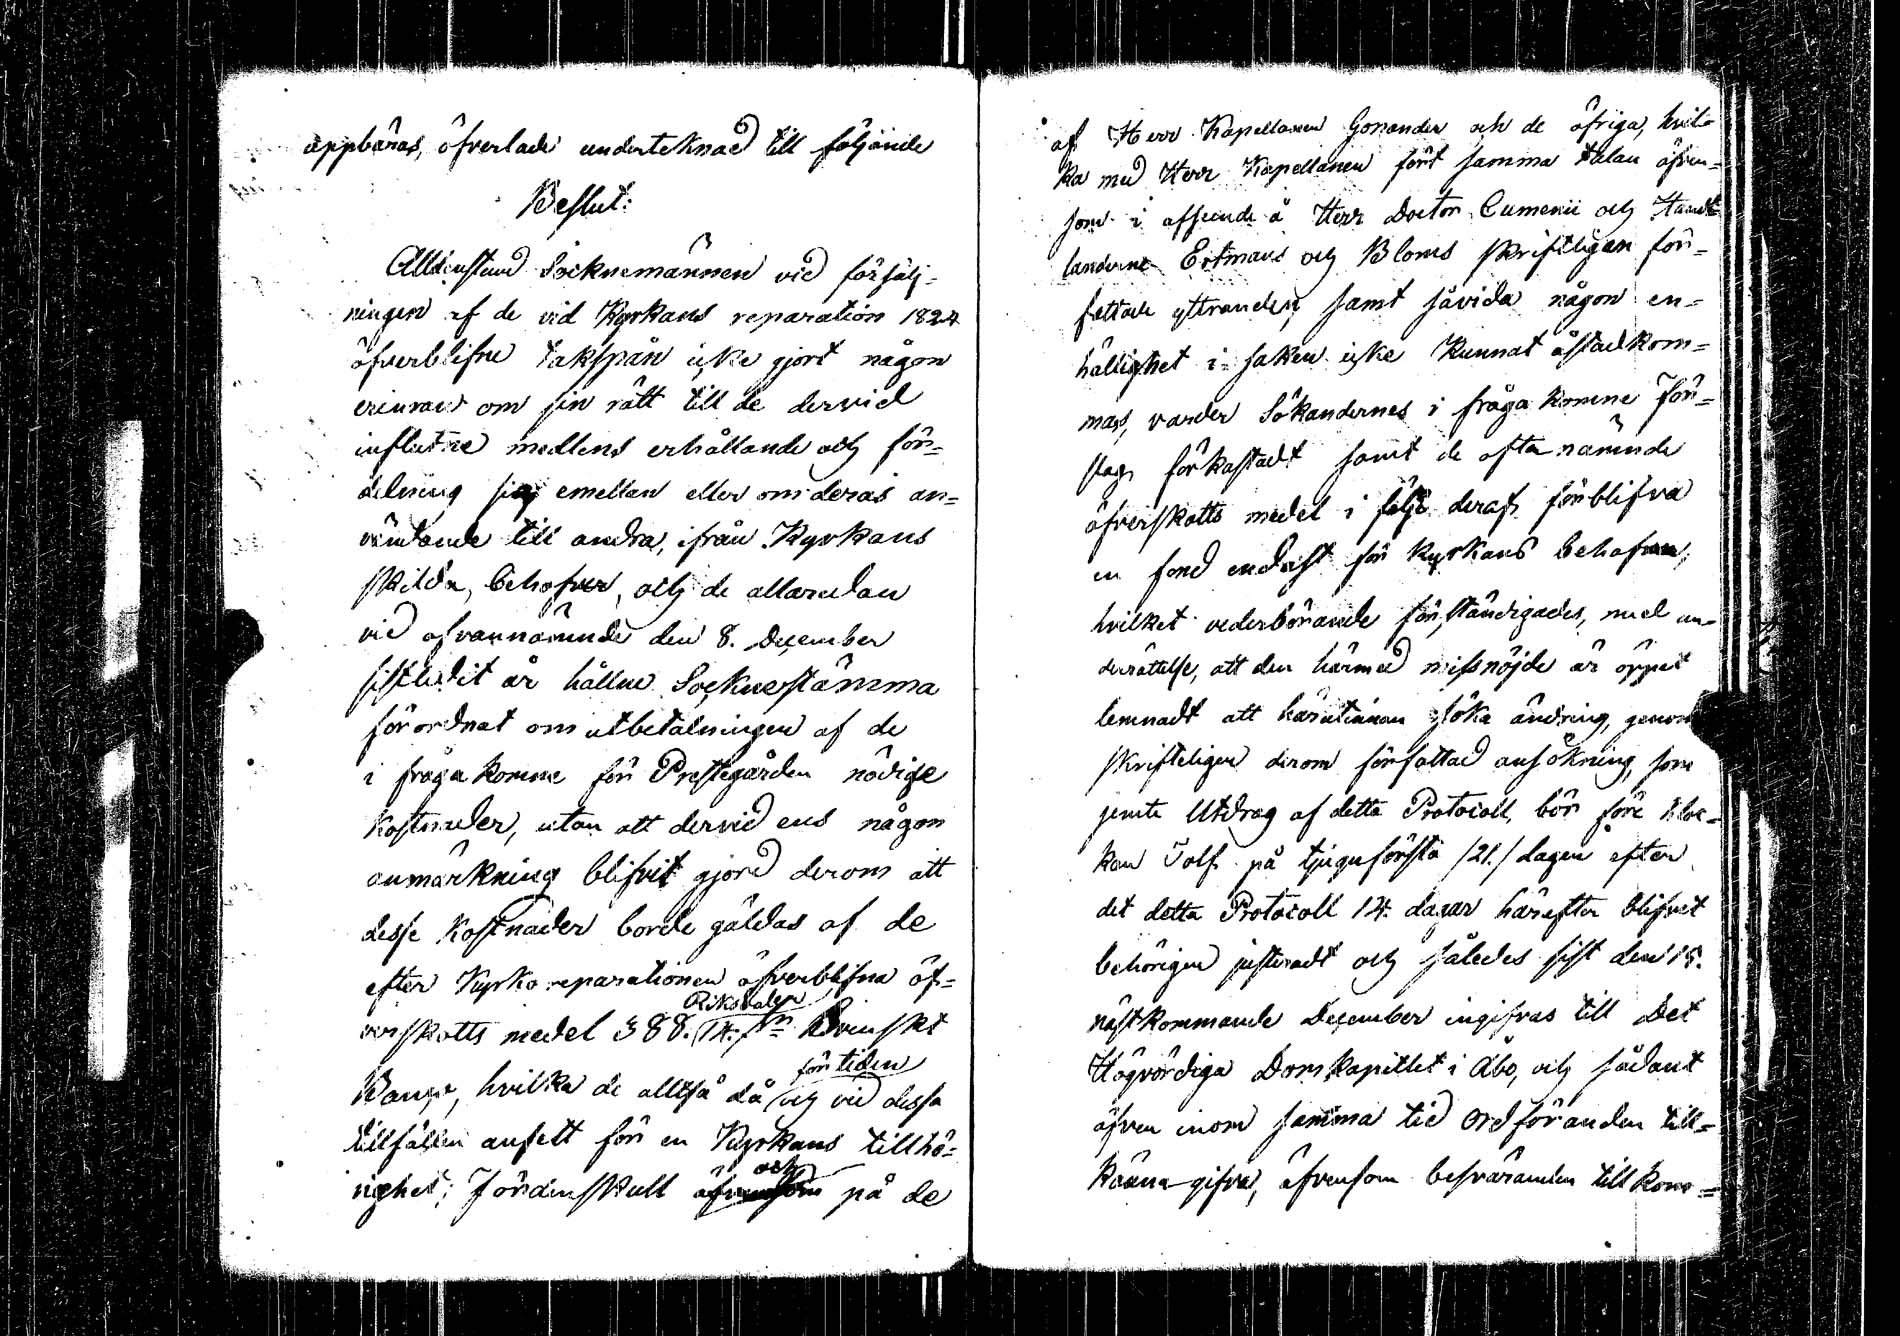 uppbäras, öfverlade undertecknad till följande
Beslut:
Alldenstund Socknemännen vid försälj-
ningen af de vid Kyrkans reparation 1824
öfverblifne takspån icke gjort någon
erinran om sin rätt till de dervid
influtne medlens erhållande och för=
delning sig emellan eller om deras an=
vändande till andra, ifrån Kyrkans
skilda, behofver, och de allaredan
vid ofvannämnde den 8. December
sistledit år hållne Sockne stämma
förordnat om utbetalningen af de
i fråga komne för Prestegården nödige
kostnader, utan att dervid ens någon
anmärkning blifvit gjord derom att
desse kostnader borde gäldas af de
efter Kyrko reparationen öfverblifna öf=
verskotts medel 388. Riksdaler 14. Svenskt
Banco, hvilka de alltså då för tiden och vid dessa
tillfällen ansett för en Kyrkans tillhö=
righet; Fördenskull och på de
af Herr Kapellanen Gonander och de öfriga, hvil=
ka med Herr Kapellanen fört samma talan äfven=
som i afseende å Herr Doctor Cumenii och
Ertmans och Bloms skriftligen för=
fattade yttranden, samt såvida någon en=
hällighet i saken icke kunnat åstadkom=
mas, varder Sökandernes i fråga komne för=
slag förkastadt samt de ofta nämnde
öfverskotts medel i följe deraf, förblifva
en fond endast för Kyrkans behofver,
hvilket vederbörande förständigades, med un=
derrättelse, att den härmed missnöjde är öppet
lemnadt att härutinnan söka ändring, genom
skrifteligen derom författad ansökning, som
jemte Utdrag af detta Protocoll, bör före kloc=
kan Tolf på tjuguförsta /21./ dagen efter
det detta Protocoll 14. dagar härefter blifvit
behörigen justeradt och således sist den 15.
nästkommande December ingifvas till Det
Högvördiga Domkapitlet i Åbo, och sådant
äfven inom samma tid Ordföranden till=
känna gifva, äfvensom besväranden tillkom=